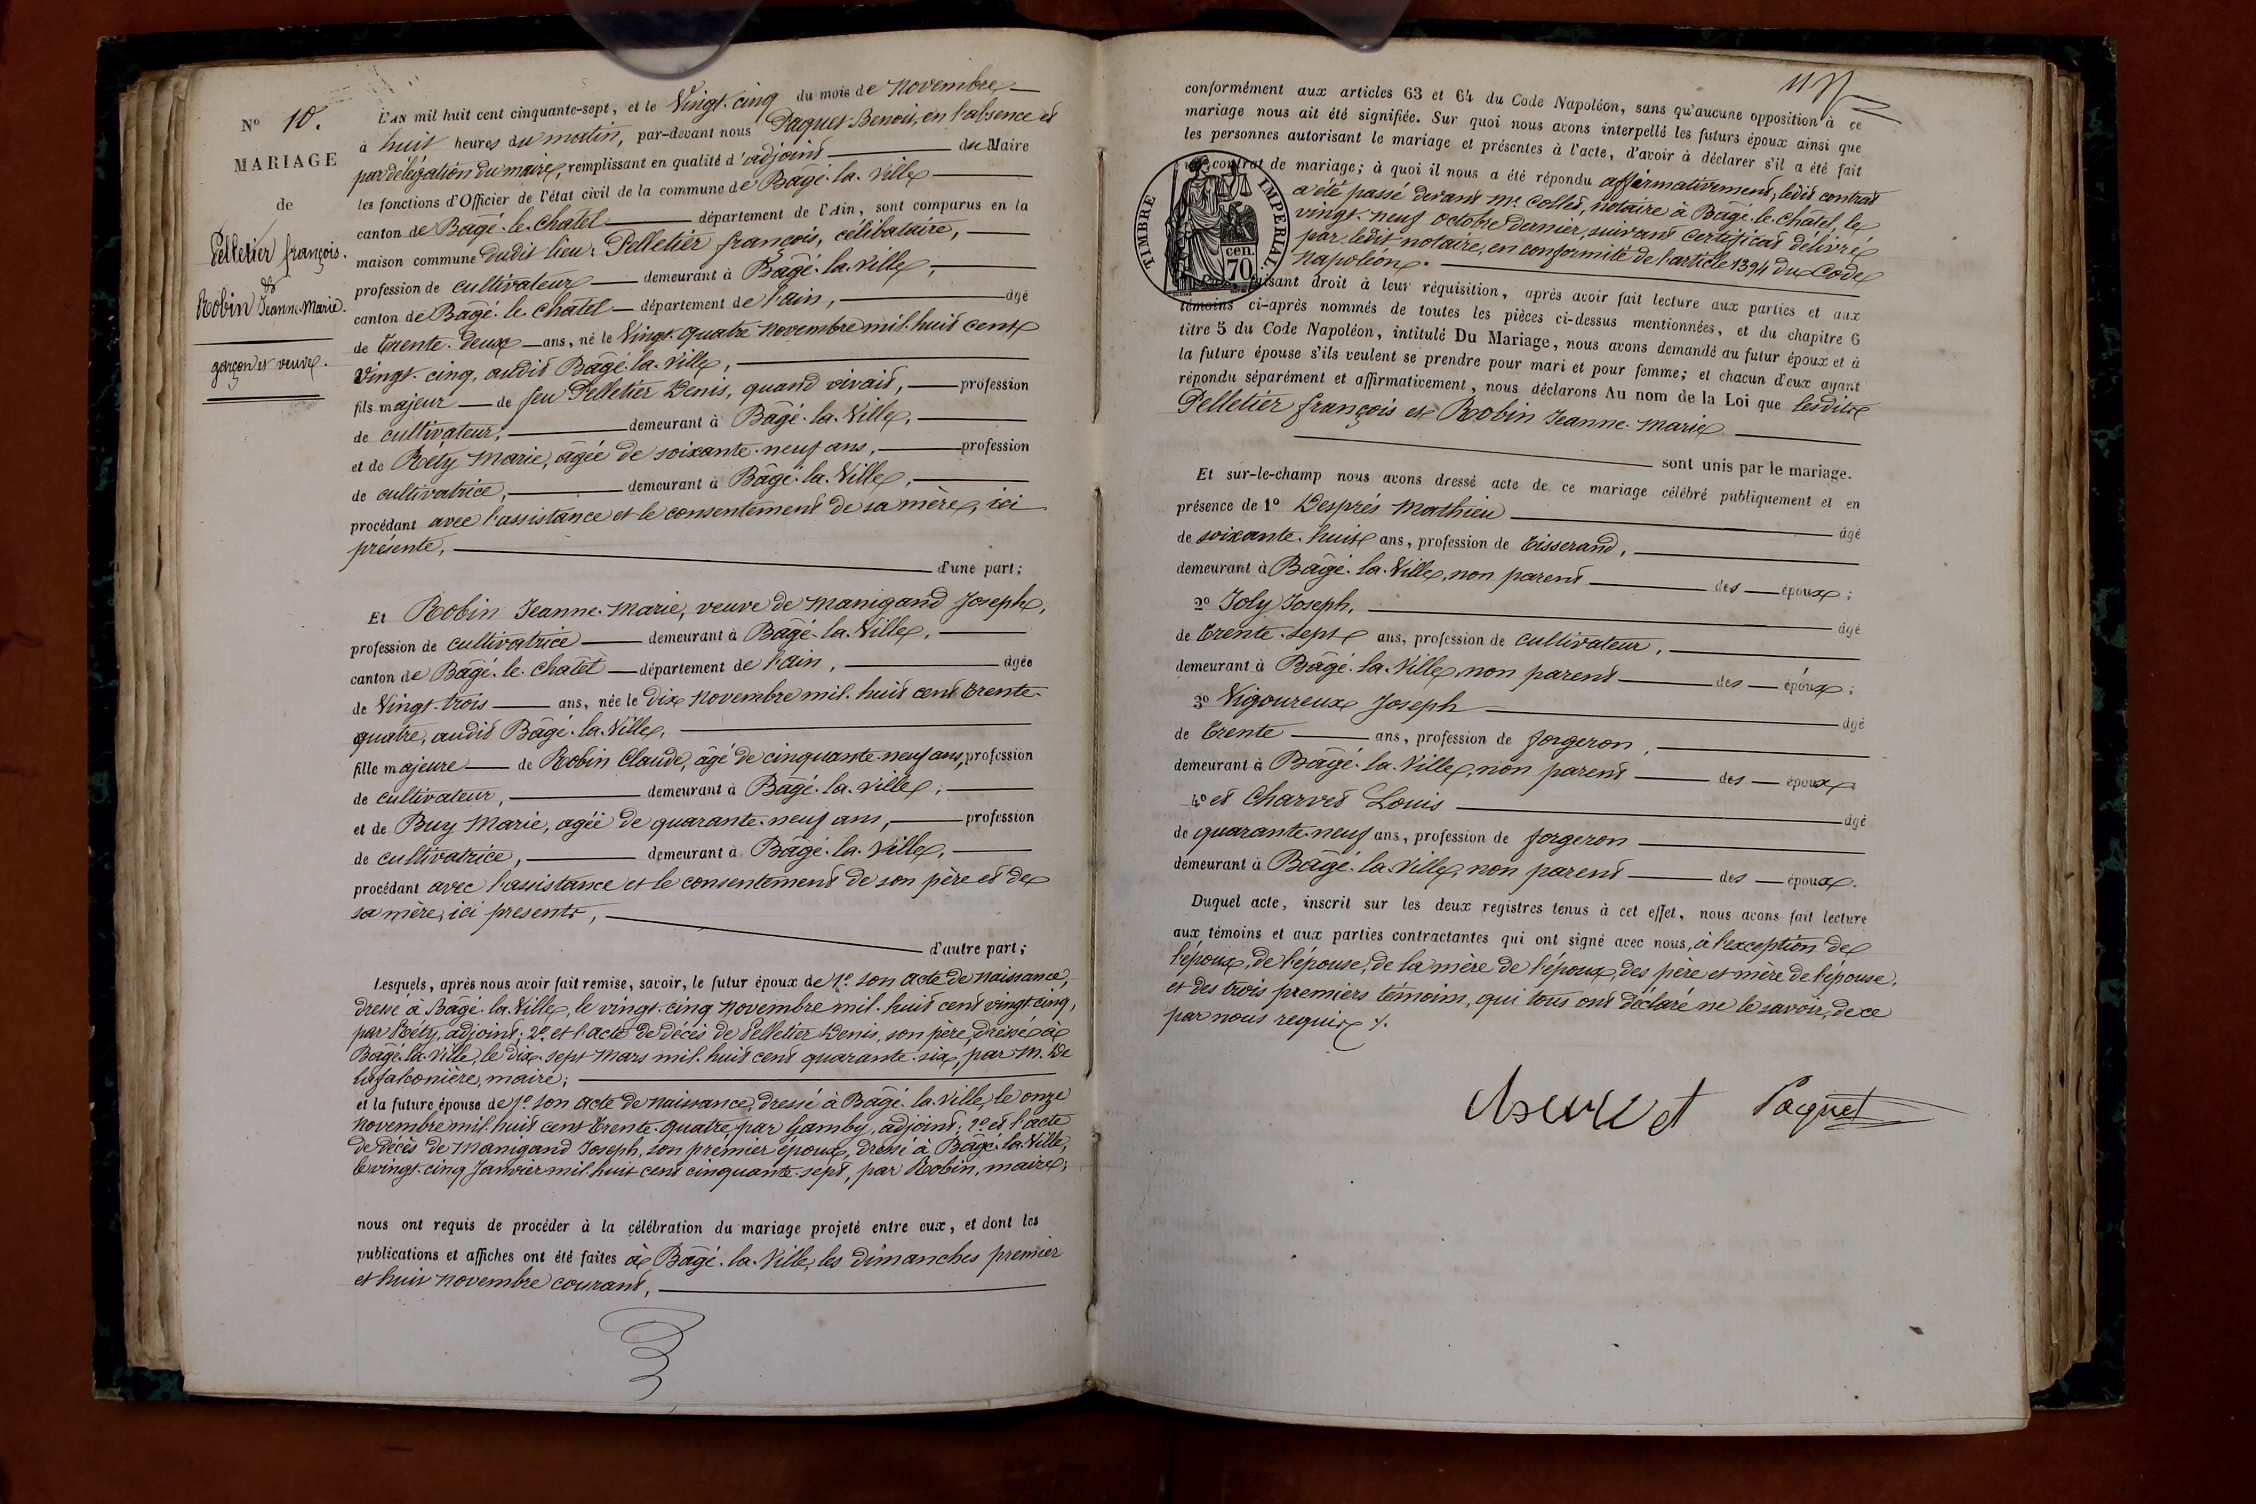 Nº 10.
MARIAGE
de
Pelletier françois.
&
Robin Jeanne-Marie.
garçon et veuve.
L'AN mil huit cent cinquante-sept, et le Vingt-cinq du mois de Novembre
à huit heures du matin, par-devant nous Paquet Benoit, en l'absence et
par délégation du maire, remplissant en qualité d'adjoint du Maire
les fonctions d'Officier de l'état civil de la commune de Bagé-la-Ville
canton de Bâgé-le-Chatel département de l'Ain, sont comparus en la
maison commune dudit lieu: Pelletier françois, célibataire,
profession de cultivateur demeurant à Bâgé-la-Ville,
canton de Bâgé-le-Châtel département de l'ain, âgé
de Trente-deux ans, né le Vingt-quatre novembre mil-huit cent
Vingt-cinq, audit Bâgé-la-Ville,
fils majeur de feu Pelletier Denis, quand vivait, profession
de cultivateur, demeurant à Bâgé-la-Ville,
et de Réty Marie, âgée de soixante-neuf ans, profession
de cultivatrice, demeurant à Bâgé-la-Ville,
procédant avec l'assistance et le consentement de sa mère, ici
présente,
d'une part;
Et Robin Jeanne-Marie, veuve de Manigand Joseph,
profession de cultivatrice demeurant à Bâgé-la-Ville,
canton de Bâgé-le-Chatel département de l'ain, âgée
de Vingt-trois ans, née le dix novembre mil-huit cent trente-
quatre, audit Bâgé-la-Ville,
fille majeure de Robin Claude, âgé de cinquante-neuf ans, profession
de cultivateur, demeurant à Bâgé-la-Ville,
et de Buy Marie, agée de quarante-neuf ans, profession
de cultivatrice, demeurant à Bâgé-la-Ville,
procédant avec l'assistance et le consentement de son père et de
sa mère, ici presents,
d'autre part;
Lesquels, après nous avoir fait remise, savoir, le futur époux de 1º son acte de naissance,
dressé à Bâgé-la-Ville, le vingt-cinq novembre mil-huit cent vingt cinq,
par Réty, adjoint; 2º et l'acte de décès de Pelletier Denis, son père, dressé à
Bâgé-la-Ville, le dix-sept mars mil-huit cent quarante-six, par M. De
Lafalconière, maire;
et la future épouse de 1º son acte de naissance, dressé à Bâgé-la-Ville, le onze
novembre mil huit cent trente-quatre, par Gamby, adjoint; 2º et l'acte
de décès de Manigand Joseph, son premier époux, dressé à Bâgé-la-Ville,
le vingt-cinq Janvier mil-huit cent cinquante-sept, par Robin, maire;
nous ont requis de procéder à la célébration du mariage projeté entre eux, et dont les
publications et affiches ont été faites à Bâgé-la-Ville, les dimanches premier
et huit novembre courant,
conformément aux articles 63 et 64 du Code Napoléon, sans qu'aucune opposition à ce
mariage nous ait été signifiée. Sur quoi nous avons interpellé les futurs époux ainsi que
les personnes autorisant le mariage et présentes à l'acte, d'avoir à déclarer s'il a été fait
un contrat de mariage; à quoi il nous a été répondu affirmativement, ledit contrat
a été passé devant Me. Collet, notaire à Bâgé-le-Châtel, le
vingt-neuf octobre dernier, suivant certificat délivré
par ledit notaire, en conformité de l'article 1394 du Code
Napoléon.
TIMBRE IMPERIAL.
70 cen.
faisant droit à leur réquisition, après avoir fait lecture aux parties et aux
témoins ci-après nommés de toutes les pièces ci-dessus mentionnées, et du chapitre 6
titre 5 du Code Napoléon, intitulé Du Mariage, nous avons demandé au futur époux et à
la future épouse s'ils veulent se prendre pour mari et pour femme; et chacun d'eux ayant
répondu séparément et affirmativement, nous déclarons Au nom de la Loi que lesdits
Pelletier françois et Robin Jeanne-Marie
sont unis par le mariage.
Et sur-le-champ nous avons dressé acte de ce mariage célébré publiquement et en
présence de 1º Després Mathieu âgé
de soixante-huit ans, profession de Tisserand,
demeurant à Bâgé-la-Ville, non parent des époux;
2º Joly Joseph, âgé
de Trente-sept ans, profession de cultivateur,
demeurant à Bâgé-la-Ville, non parent des époux;
3º Vigoureux Joseph âgé
de Trente ans, profession de forgeron,
demeurant à Bâgé-la-Ville, non parent des époux
4º et Charvet Louis âgé
de quarante-neuf ans, profession de forgeron
demeurant à Bâgé-la-Ville, non parent des époux.
Duquel acte, inscrit sur les deux registres tenus à cet effet, nous avons fait lecture
aux témoins et aux parties contractantes qui ont signé avec nous, à l'exception de
l'époux, de l'épouse, de la mère de l'époux, des père et mère de l'epouse,
et des trois premiers témoins, qui tous ont déclaré ne le savoir, de ce
par nous requis.
Paquet